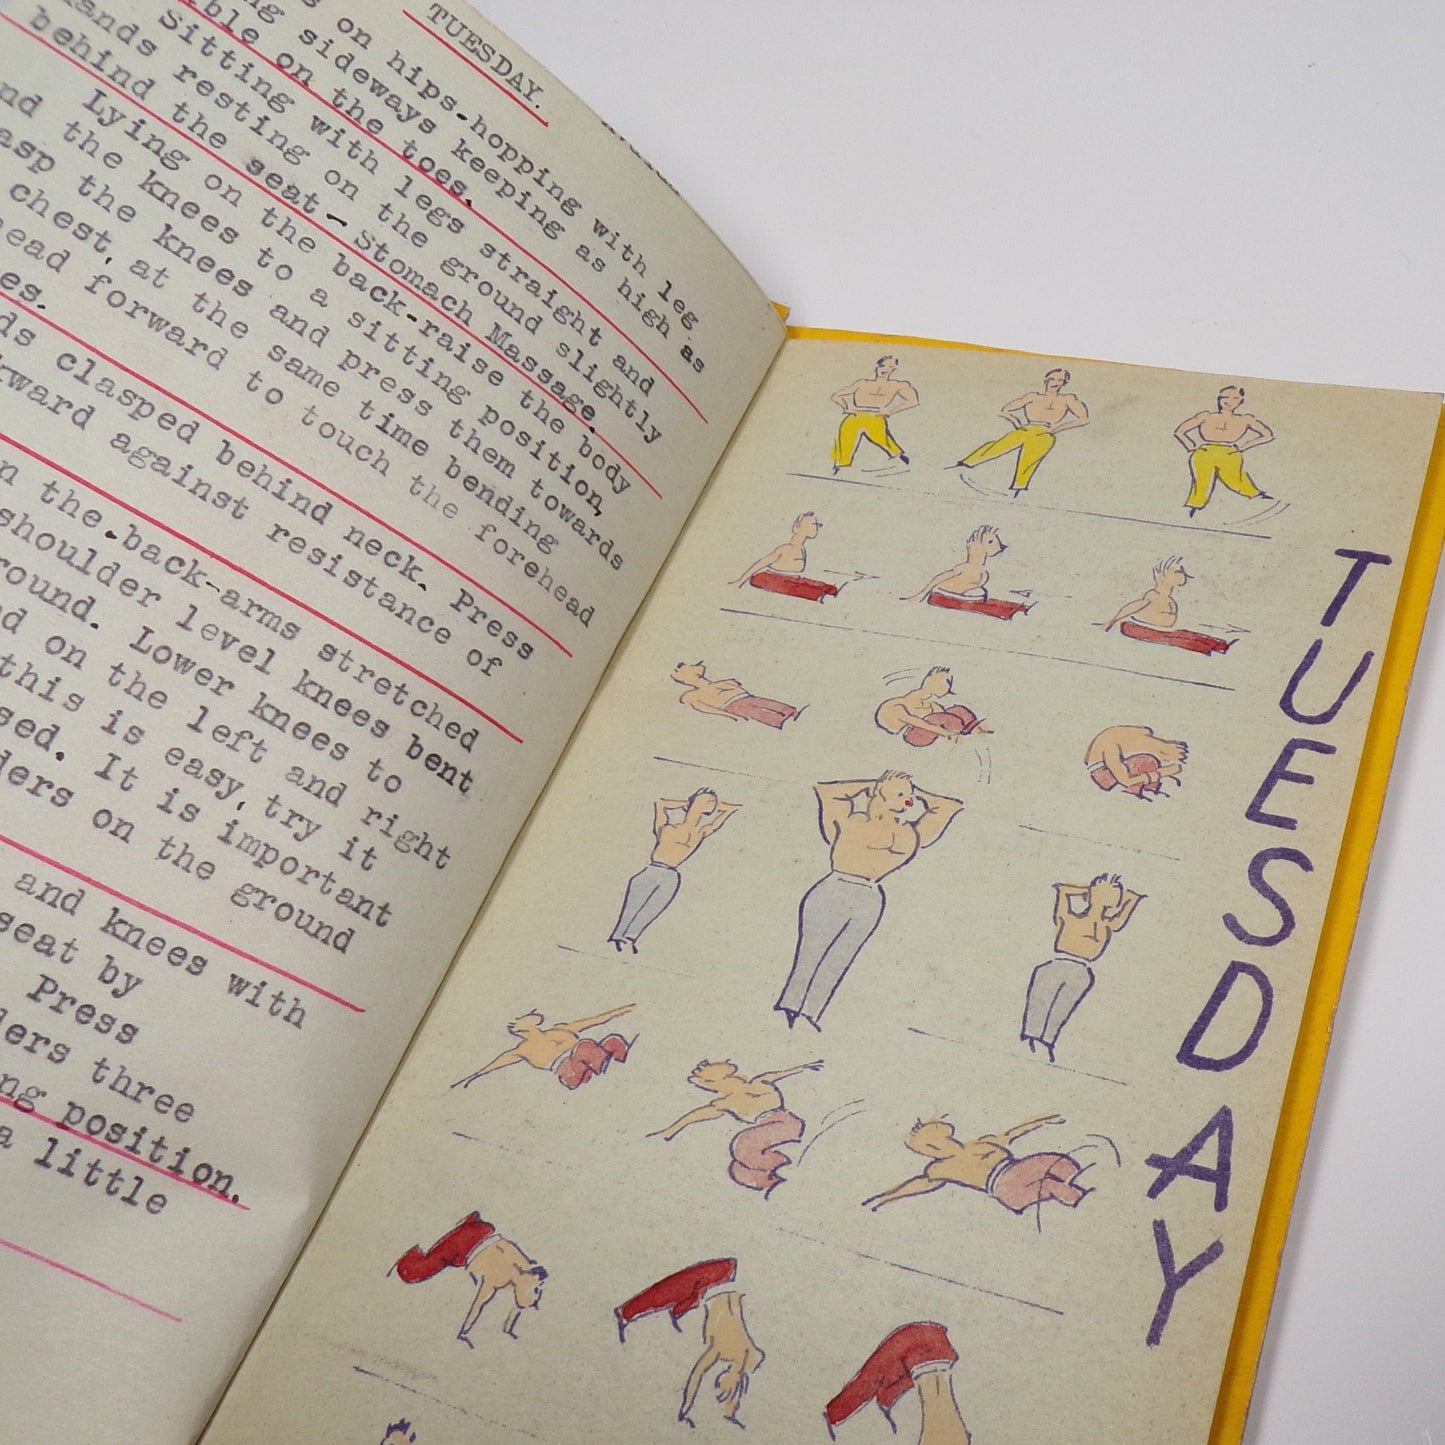 TUESDAY.
on hips-hopping with leg
sideways keeping as high as
ible on the toes.
Sitting with legs straight and
hands resting on the ground slightly
behind the seat - Stomach Massage.
Lying on the back-raise the body
nd the knees to a sitting position,
asp the knees and press them towards
chest, at the same time bending
head forward to touch the forehead
es.
ds clasped behind neck. Press
kward against resistance of
n the back-arms stretched
shoulder level knees bent
round. Lower knees to
d on the left and right
this is easy, try it
sed. It is important
ders on the ground
and knees with
seat by
Press
ders three
ng position.
a little
TUESDAY